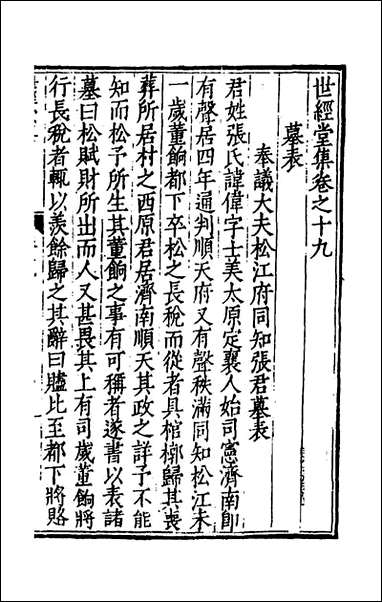 世經堂集卷之十九
墓表
奉議大夫松江府同知張君墓表
君姓張氏諱偉字士美太原定襄人始司憲濟南即
有聲居四年通判順天府又有聲秩滿同知松江未
一歲董餉都下卒松之長稅而從者具棺槨歸其喪
葬所居村之西原君居濟南順天其政之詳予不能
知而松予所生其董餉之事有可稱者遂書以表諸
墓曰松賦財所出而人又甚畏其上有司歲董餉將
行長稅者輒以羨餘歸之其辭曰贐比至都下將賂